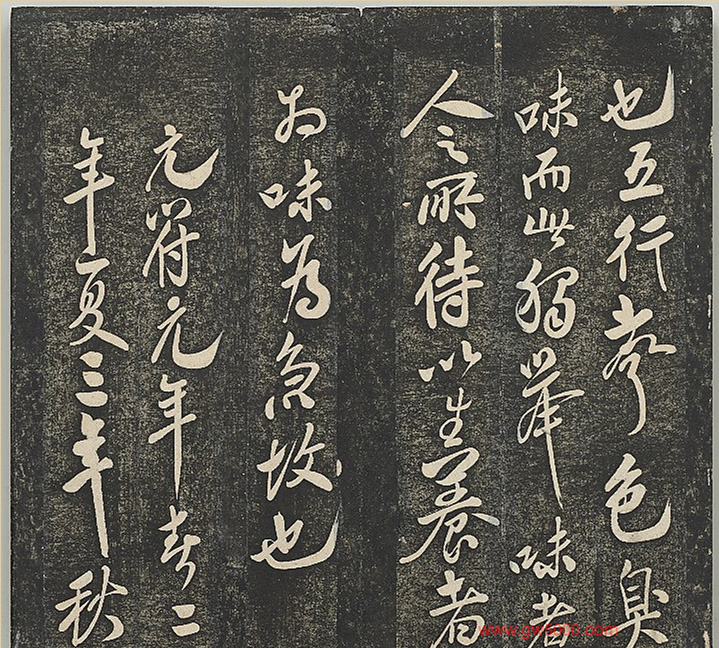 也五行聲色臭
味而此獨舉味者
人之所待以生養者
而味為急故也
元符元年春二
年夏三年秋
www.gw5000.com